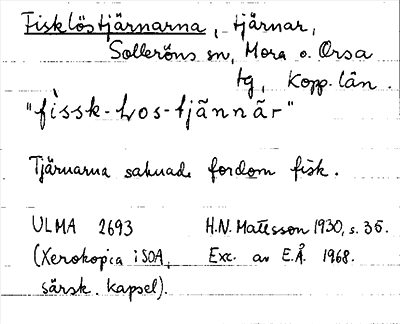 Fisklöstjärnarna, tjärnar,
Solleröns sn, Mora o. Orsa
tg, Kopp. län.
"fìssk-Los-tjännär"
Tjärnarna saknade fordom fisk.
ULMA 2693 H.N. Matsson 1930, s. 35.
(Xerokopia i SOA, Exc. av E.Å. 1968.
särsk. kapsel).